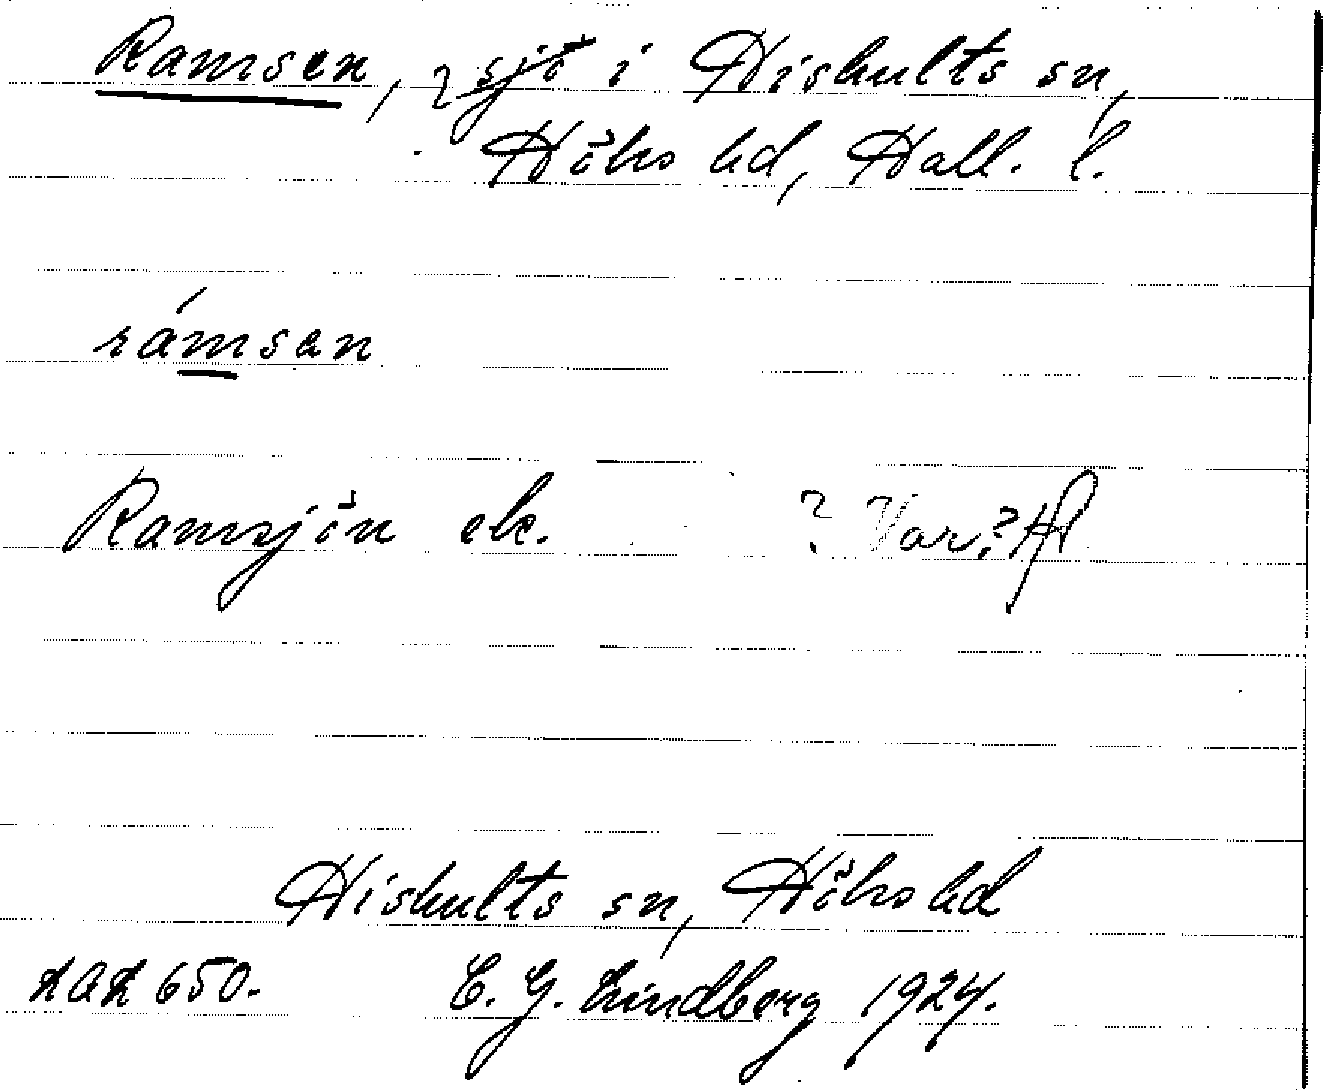 Ramsen, ? sjö i Hishults sn,
Höks hd, Hall. l.
rámsen
Ramsjön ek. ? Var?
Hishults sn, Höks hd
650. C. G. Lindberg 1924.